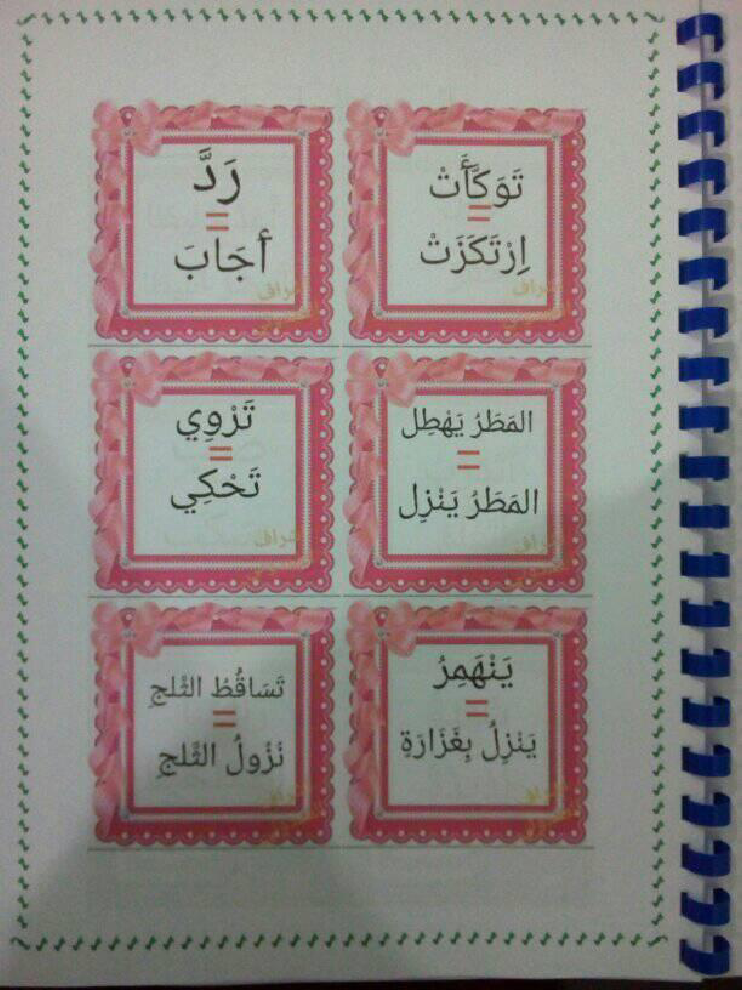 تَوَكَّأَتْ
=
اِرْتَكَزَتْ
رَدَّ
=
أجَابَ
المَطَرُ يَهْطِل
=
المَطَرُ يَنْزِل
تَرْوِي
=
تَحْكِي
يَنْهَمِرُ
=
يَنزِلُ بِغَزَارَةِ
تَسَاقُطُ الثْلجِ
=
نُزُولُ الثَّلجِ